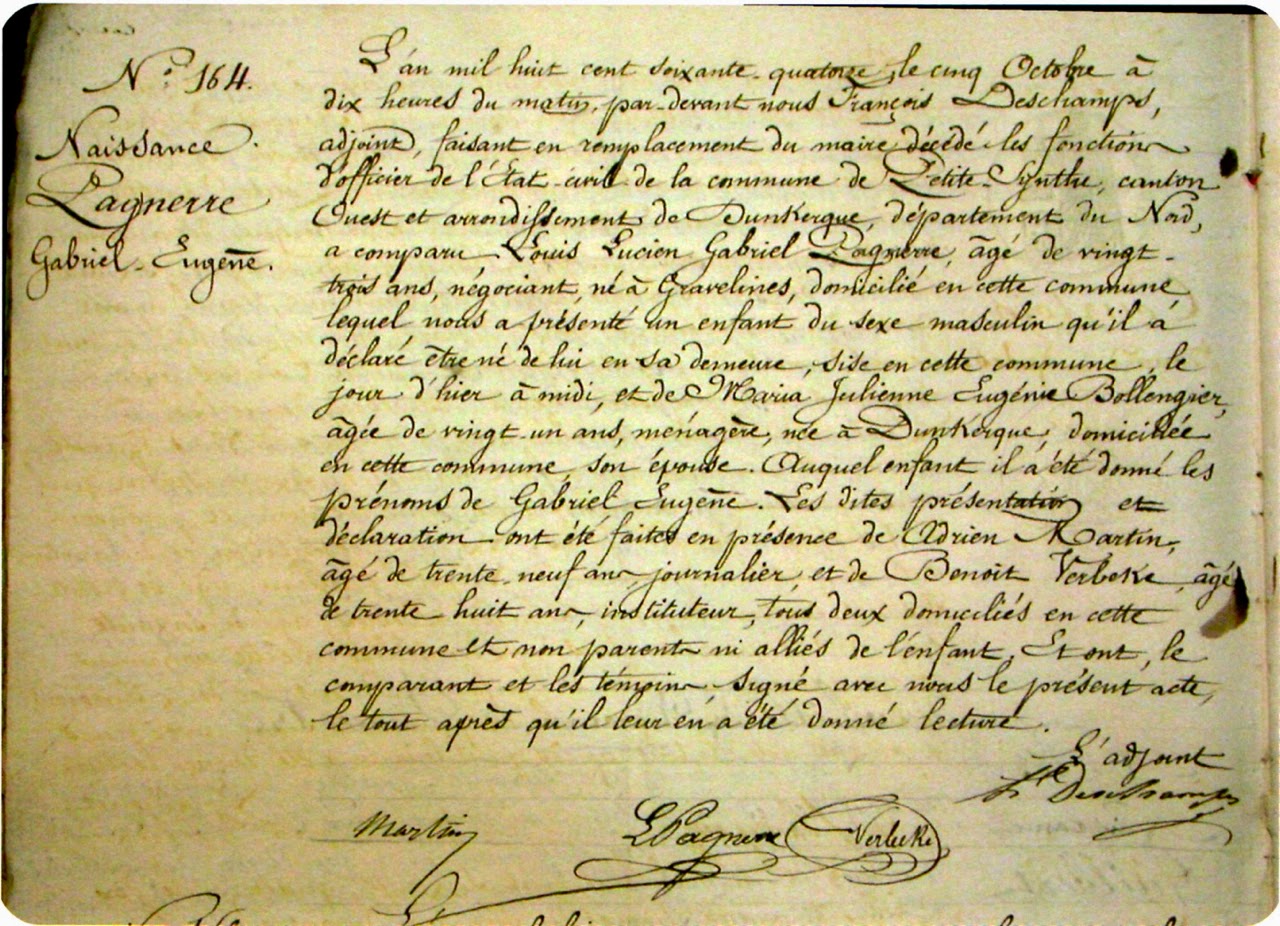 N.º 164.
Naissance
Pagnerre
Gabriel Eugène.
L'an mil huit cent soixante-quatorze, le cinq Octobre à
dix heures du matin, par-devant nous François Deschamps,
adjoint, faisant en remplacement du maire décédé les fonctions
d'officier de l'État-civil de la commune de Petite-Synthe, canton
Ouest et arrondissement de Dunkerque, département du Nord,
a comparu Louis Lucien Gabriel Pagnerre, âgé de vingt-
trois ans, négociant, né à Gravelines, domicilié en cette commune,
lequel nous a présenté un enfant du sexe masculin qu'il a
déclaré être né de lui en sa demeure, sise en cette commune, le
jour d'hier à midi, et de Maria Julienne Eugénie Bollengier,
âgée de vingt-un ans, ménagère, née à Dunkerque, domiciliée
en cette commune, son épouse. Auquel enfant il a été donné les
prénoms de Gabriel Eugène. Les dites présentation et
déclaration ont été faites en présence de Adrien Martin,
âgé de trente-neuf ans, journalier, et de Benoît Verbeke, âgé
de trente huit ans, instituteur, tous deux domiciliés en cette
commune et non parents ni alliés de l'enfant. Et ont, le
comparant et les témoins signé avec nous le présent acte,
le tout après qu'il leur en a été donné lecture.
L'adjoint
Fs Deschamps
Martin
L Pagnerre
Verbeke